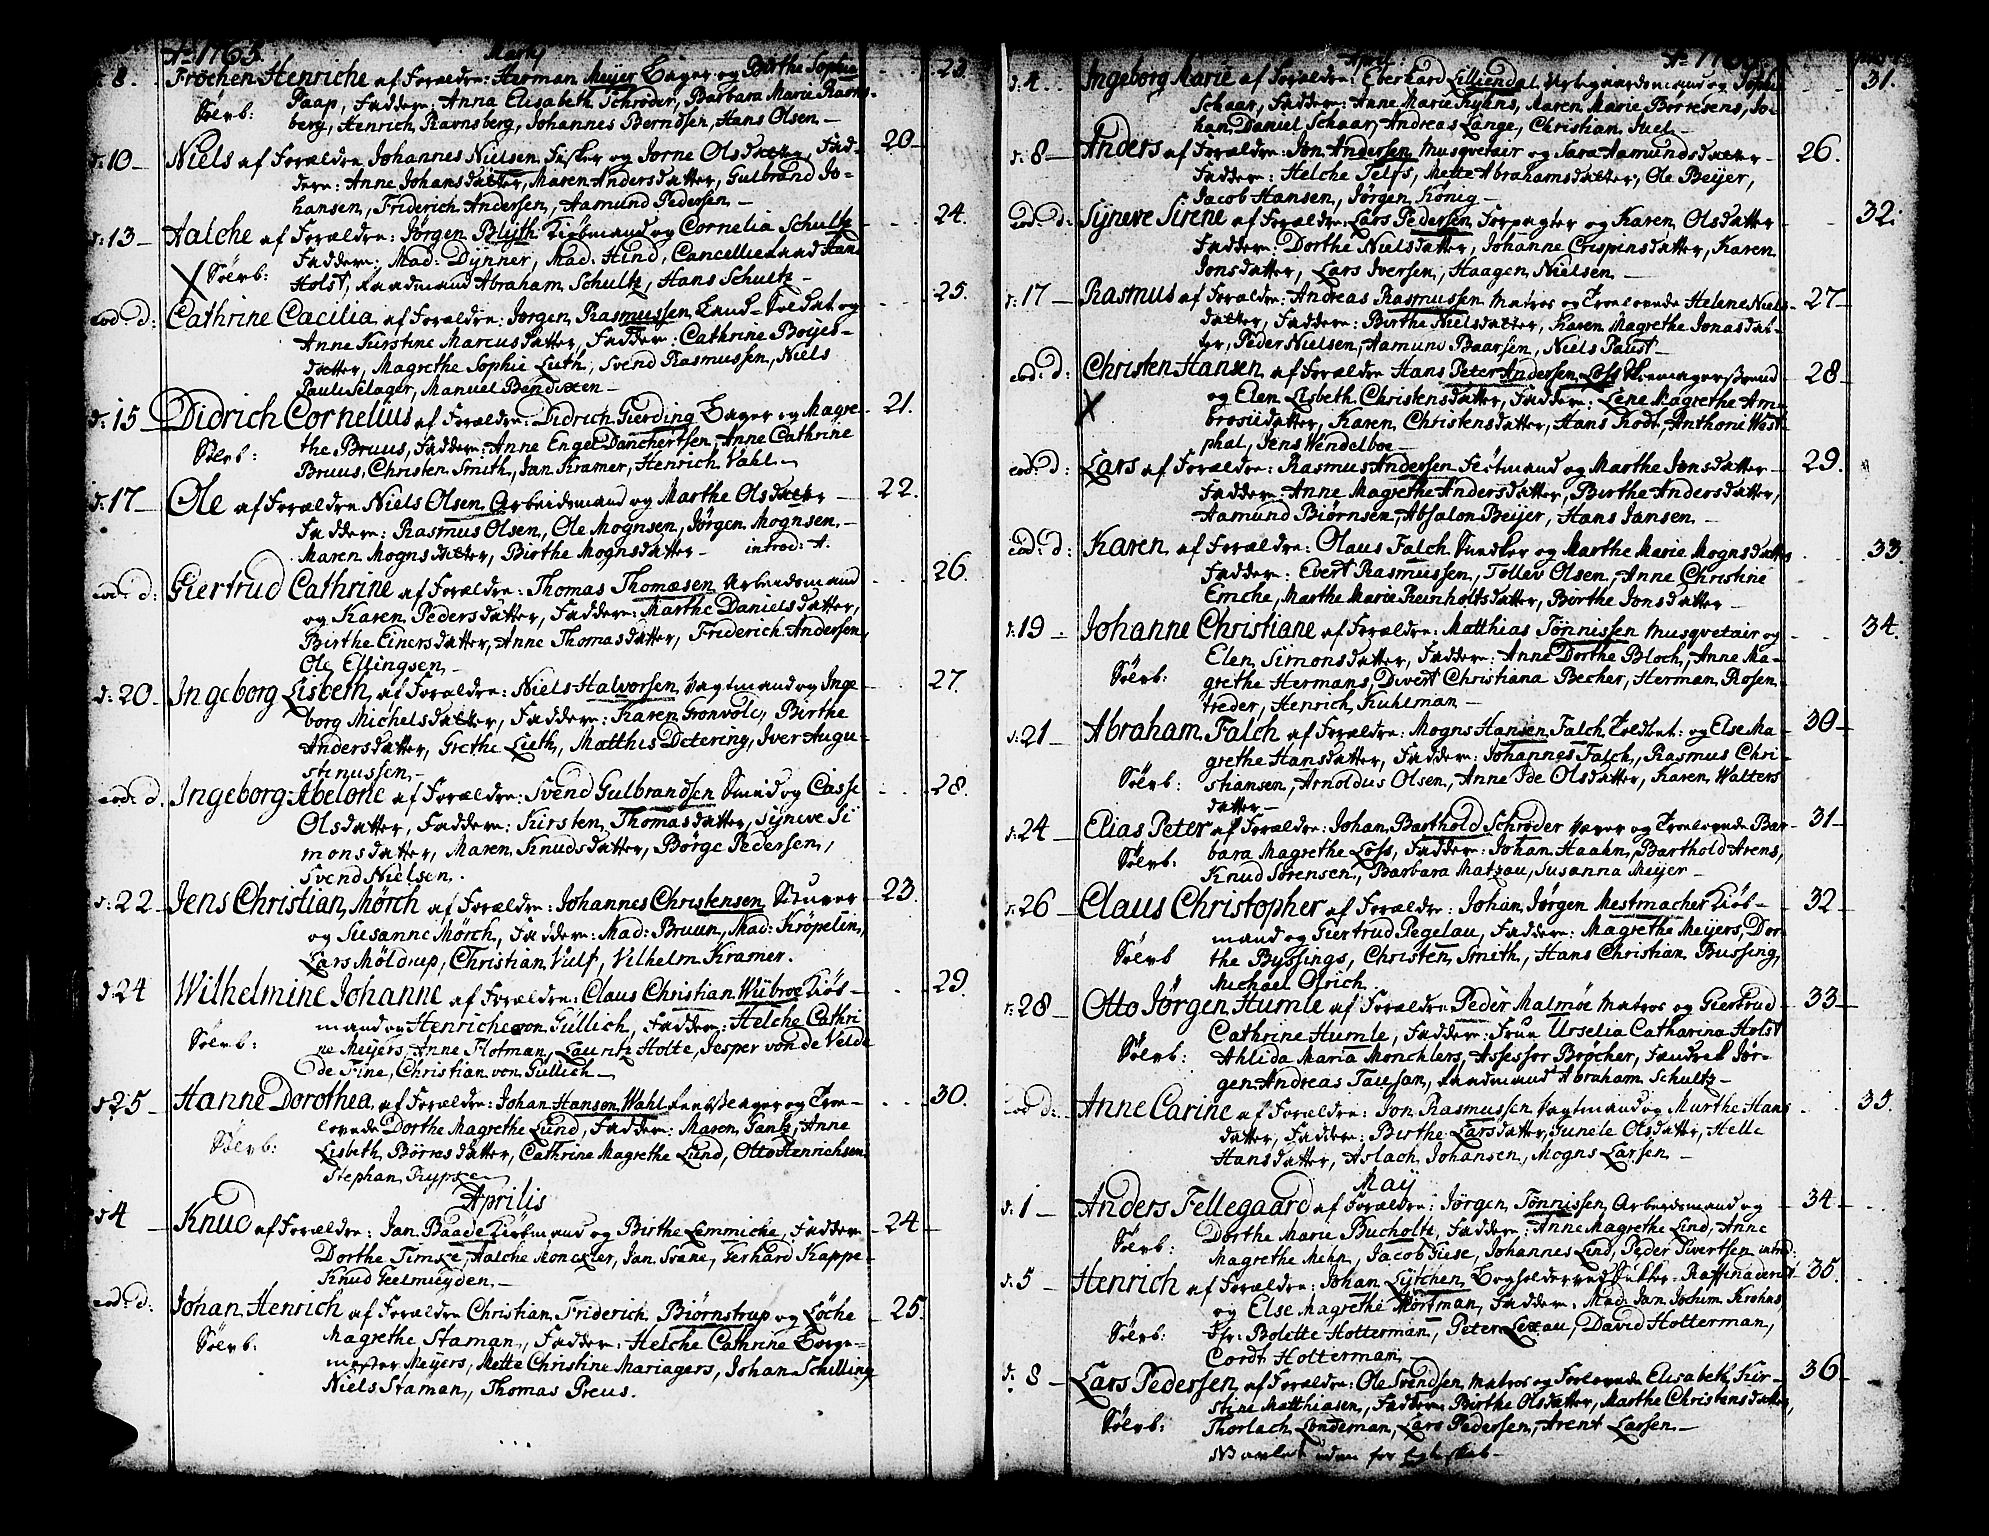 Ao 1765. Martj
d: 8. Frochen Henriche af Forældre: Herman Meyer Bager og Birthe Sophia 23.
Sölvb: Paap, Faddere: Anna Elisabeth Schroder, Barbara Marie Ravns-
berg, Henrich Ravnsberg, Johannes Berndsen, Hans Olsen.
d: 10 Niels af Forældre Johannes Nielsen Fisker og Jorne Olsdatter, Fad- 20
dere: Anne Johansdatter, Maren Andersdatter, Gulbrand Jo-
hansen, Friderich Andersen, Aamund Pedersen
d: 13 Aalche af Forældre: Jørgen Blyth Kiøbmand og Cornelia Schultz 24.
Faddere: Mad: Dynner, Mad: Hind, Cancellieraad Hans
X Sölvb: Holst, Raadmand Abraham Schultz, Hans Schultz
eod: d: Cathrine Cæcilia af Forældre: Jørgen Rasmussen Land-Soldat og 25.
Anne Kirstine Marcusdatter, Faddere: Cathrine Boyes-
datter, Magrethe Sophie Luth, Svend Rasmussen, Niels
Pauli Slager, Manuel Bendixen
d: 15 Didrich Cornelius af Forældre: Didrich Gierding Bager og Magre- 21.
Sölvb: the Bruus, Faddere: Anne Engel Danchertsen, Anne Cathrine
Bruus, Christen Smith, Jan Kramer, Henrich Vahl
d: 17 Ole af Forældre Niels Olsen Arbeidsmand og Marthe Olsdatter 22.
Faddere: Rasmus Olsen, Ole Mognsen, Jørgen Mognsen
Maren Mognsdatter, Birthe Mognsdatter introd: A.
eod: d: Giertrud Cathrine af Forældre: Thomas Thomæsen Arbeidsmand 26.
og Karen Pedersdatter, Faddere: Marthe Danielsdatter,
Birthe Einersdatter, Anne Thomasdatter, Friderich Andersen,
Ole Ellingsen
d: 20 Ingeborg Lisbeth af Forældre: Niels Halvorsen Vagtmand og Inge- 27.
borg Michelsdatter, Faddere: Karen Gronvold, Birthe
Andersdatter, Grethe Luth, Matthis Detering, Iver Augu-
stinussen
eod: d. Ingeborg Abelone af Forældre: Svend Gulbrandsen Smed og Cisse 28.
Olsdatter, Faddere: Kirsten Thomasdatter, Syneve Si
monsdatter, Maren Knudsdatter, Börge Pedersen,
Svend Nielsen.
d: 22 Jens Christian Mørch af Forældre: Johannes Christensen Stuver 23.
og Susanne Mørch, Faddere: Mad: Bruun, Mad: Kröpelin,
Lars Möldrup, Christian Vulf, Vilhelm Kramer.
d: 24 Wilhelmine Johanne af Forældre: Claus Christian Wiibroe Kiöb- 29.
mand og Henriche von Güllich, Faddere: Helche Cathri
Sölvb: ne Meyers, Anne Flotman, Lauritz Holte, Jesper von de Velde
de Fine, Christian von Gullich
d: 25 Hanne Dorothea af Forældre: Johan Hansen Wahl og Tro- 30.
lovede Dorthe Magrethe Lund, Faddere: Maren Gantz, Anne
Sölvb: Lisbeth Börresdatter, Cathrine Magrethe Lund, Otto Henrichsen,
Stephan Rypsee
Aprilis
d 4 Knud af Forældre: Jan Baade Kiöbmand og Birthe Lemmiche, Faddere 24
Dorthe Timke, Aalche Monckler, Jan Svane, Gerhard Kappe
Knud Geelmuyden
eod: d: Johan Henrich af Forældre Christian Friderich Biørnstrup og Löche 25.
Sölvb: Magrethe Staman, Faddere: Helche Cathrine Borge-
mester Meyers, Mette Christine Mariagers, Johan Schilling
Niels Staman, Thomas Preus.
April: Ao 1765.
d: 4 Ingeborg Marie af Forældre: Eberhard Lilliendal og Sophie 31.
Schaar, Faddere: Anne Marie Kyhns, Maren Marie Borresens, Jo-
han Daniel Schaar, Andreas Lange, Christian Juel
d: 8 Anders af Forældre: Jon Andersen Musqvetair og Sara Aamundsdatter 26.
Faddere: Helche Telfs, Mette Abrahamsdatter, Ole Beyer,
Jacob Hansen, Jørgen König
eod: d: Syneve Sirene af Forældre Lars Pedersen Forpagter og Karen Olsdatter 32.
Faddere: Dorthe Nielsdatter, Johanne Crispinsdatter, Karen
Jonsdatter, Lars Iversen, Haagen Nielsen
d: 17 Rasmus af Forældre: Andreas Rasmussen Matros og Trolovede Helene Niels 27
datter, Faddere: Birthe Nielsdatter, Karen Magrethe Jonasdat-
ter, Peder Nielsen, Aamund Baarsen, Niels Paust
eod: d: Christen Hansen af Forældre Hans Peter Andersen Loss Skomagersvend 28
X og Elen Lisbeth Christensdatter, Faddere: Lene Magrethe Am-
brosiidatter, Karen Christensdatter, Hans Kodt, Anthoni West-
phal, Jens Wendelboe
eod: d: Lars af Forældre: Rasmus Andersen Feötmand og Marthe Jonsdatter 29.
Faddere: Anne Magrethe Andersdatter, Birthe Andersdatter,
Aamund Biørnsen, Absalon Beyer, Hans Jansen
eod: d: Karen af Forældre: Olaus Falch Snedker og Marthe Marie Mognsdatter 33
Faddere: Evert Rasmussen, Tollev Olsen, Anne Christine
Emche, Marthe Marie Reinholtsdatter, Birthe Jonsdatter
d: 19 Johanne Christiane af Forældre: Matthias Tönnissen Musqvetair og 34.
Elen Simonsdatter, Faddere: Anne Dorthe Bloch, Anne Ma-
Sölvb: grethe Hermans, Divert Christiana Becher, Herman Rosen-
treder, Henrich Kuhlman
d: 21 Abraham Falch af Forældre: Mogns Hansen Falch og Else Ma- 30
grethe Hansdatter, Faddere: Johannes Falch, Rasmus Chri-
Sölvb: stiansen, Arnoldus Olsen, Anne Ide Olsdatter, Karen Walters
datter
d: 24 Elias Peter af Forældre: Johan Barthold Schroder og Trolovede Bar- 31
Sölvb: bara Magrethe Loss, Faddere: Johan Haahn, Barthold Arens,
Knud Sörensen, Barbara Matzau, Susanna Meyer
d: 26 Claus Christopher af Forældre: Johan Jörgen Mestmacher Kiöb- 32
mand og Giertrud Pegelau, Faddere: Magrethe Meyers, Dor-
Sölvb the Byssings, Christen Smith, Hans Christian Bussing,
Michael Olrich
d: 28 Otto Jörgen Humle af Forældre Peder Malmöe Matros og Giertrud 33
Cathrine Humle, Faddere: Frue Urselia Catharina Holst
Sölvb: Ahlida Maria Monchlers, Assessor Bröcher, Fændrek Jör-
gen Andreas Tausan, Raadmand Abraham Schultz
eod: d: Anne Carine af Forældre: Jon Rasmussen Vagtmand og Marthe Hans 35.
datter, Faddere: Birthe Larsdatter, Gunele Olsdatter, Helle
Hansdatter, Aslach Johansen, Mogns Larsen
May
d: 1 Anders Fellegaard af Forældre: Jørgen Tönnissen Arbeidsmand og 34
Sölvb: Dorthe Marie Bucholtz, Faddere: Anne Magrethe Lind, Anne
Magrethe Mehn, Jacob Giese, Johannes Lind, Peder Sivertsen introd:
d: 5 Henrich af Forældre: Johan Lytchen Bogholder ved Sukker-Raffinaderiet 35.
og Else Magrethe Mortman, Faddere: Mad: Jan Jochim Krohns,
Sölvb: Jfr: Bolette Hotterman, Peter Lexau, David Hotterman,
Cordt Hotterman
d: 8 Lars Pederssen af Forældre: Ole Svendsen Matros og Forlovede Elisabeth Kir- 36
stine Matthiasen, Faddere: Birthe Olsdatter, Marthe Christensdatter,
Sölvb: Thorlach Londeman, Lars Pedersen, Arent Larsen
NB avlet uden for Egteskab